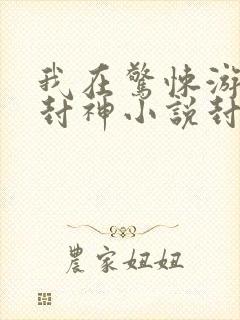 我在驚悚游
封神小說封
農家妞妞